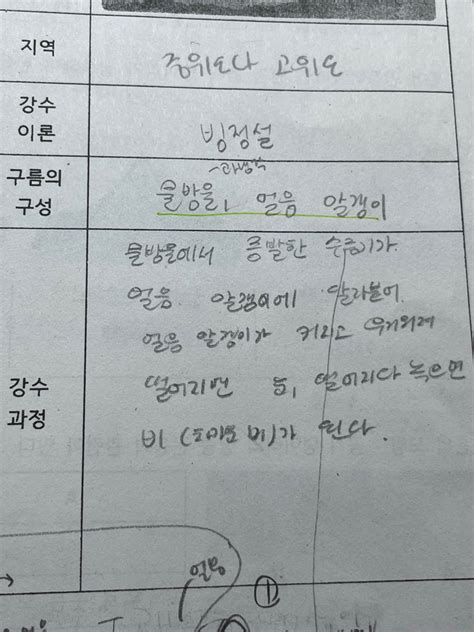 지역
중위도나 고위도
강수
이론
빙정설
과냉각
구름의
구성
물방울, 얼음 알갱이
물방울에서 증발한 수증기가
얼음 알갱이에 달라붙어
얼음 알갱이가 커지고 무거워져
떨어지면 눈, 떨어지다 녹으면
강수
과정
비 ( 비)가 된다.
얼음
①